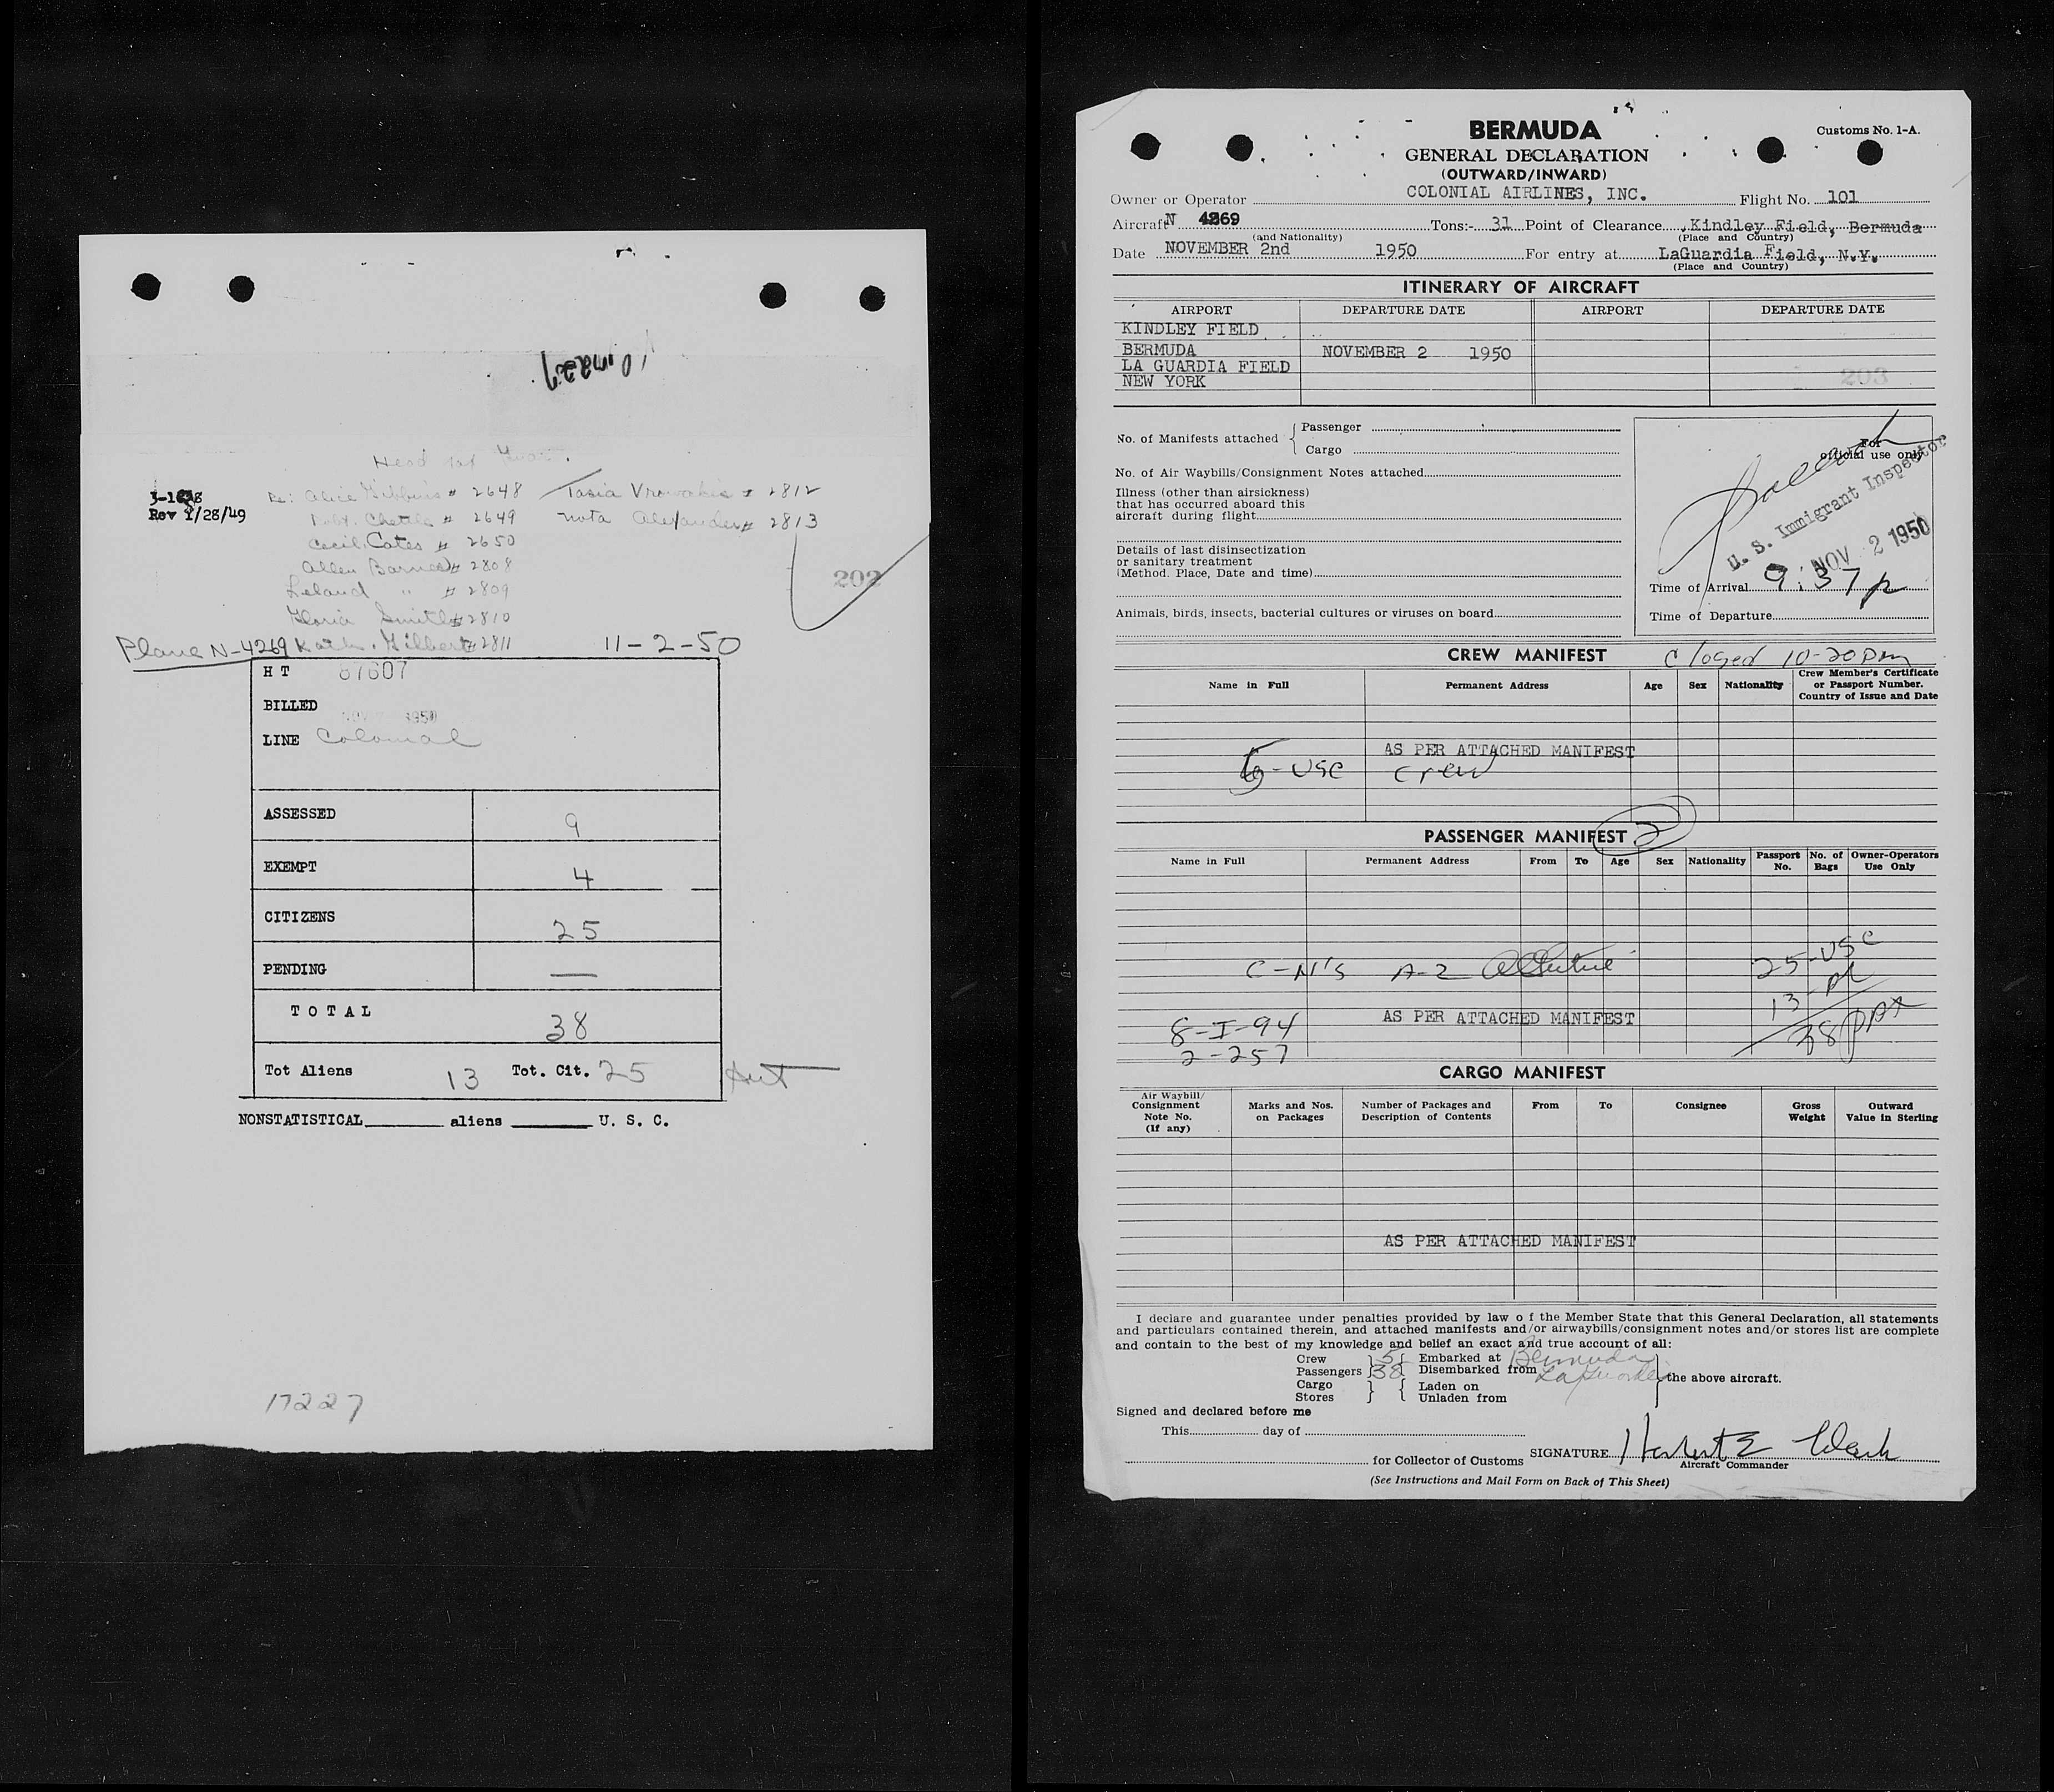 Head tax
3-1
Rev 1/28/49
Re: Alice Gibbins # 2648
Chettle # 2649
Cecil Cates # 2650
Allen Barnes # 2808
Leland " # 2809
Gloria Smith # 2810
Kath. Gilbert # 2811
Tasia Vrowakis # 2812
Nota Alexander # 2813
202
Plane N-4269
11-2-50
H T 67607
BILLED NOV 1950
LINE Colonial
ASSESSED 9
EXEMPT 4
CITIZENS 25
PENDING —
TOTAL 38
Tot Aliens 13 Tot. Cit. 25
NONSTATISTICAL aliens U. S. C.
17227
BERMUDA
Customs No. 1-A.
GENERAL DECLARATION
(OUTWARD/INWARD)
Owner or Operator COLONIAL AIRLINES, INC. Flight No. 101
Aircraft N 4269 Tons:- 31 Point of Clearance Kindley Field, Bermuda
(and Nationality) (Place and Country)
Date NOVEMBER 2nd 1950 For entry at LaGuardia Field, N.Y.
(Place and Country)
ITINERARY OF AIRCRAFT
AIRPORT DEPARTURE DATE AIRPORT DEPARTURE DATE
KINDLEY FIELD
BERMUDA NOVEMBER 2 1950
LA GUARDIA FIELD
NEW YORK
203
No. of Manifests attached { Passenger
Cargo
No. of Air Waybills/Consignment Notes attached
Illness (other than airsickness)
that has occurred aboard this
aircraft during flight
Details of last disinsectization
or sanitary treatment
(Method. Place, Date and time)
Animals, birds, insects, bacterial cultures or viruses on board
For
official use only
U. S. Immigrant Inspector
NOV 2 1950
Time of Arrival 9:37 p
Time of Departure
CREW MANIFEST Closed 10-20pm
Name in Full Permanent Address Age Sex Nationality Crew Member's Certificate
or Passport Number.
Country of Issue and Date
AS PER ATTACHED MANIFEST
5-USC Crew
PASSENGER MANIFEST 2
Name in Full Permanent Address From To Age Sex Nationality Passport No. No. of Bags Owner-Operators Use Only
C-N's A-2
25-USC
13-al
38 pax
AS PER ATTACHED MANIFEST
8-I-94
2-257
CARGO MANIFEST
Air Waybill/
Consignment
Note No.
(If any)
Marks and Nos.
on Packages
Number of Packages and
Description of Contents
From To Consignee
Gross
Weight
Outward
Value in Sterling
AS PER ATTACHED MANIFEST
I declare and guarantee under penalties provided by law o f the Member State that this General Declaration, all statements
and particulars contained therein, and attached manifests and/or airwaybills/consignment notes and/or stores list are complete
and contain to the best of my knowledge and belief an exact and true account of all:
Crew } 5 { Embarked at Bermuda
Passengers } 38 { Disembarked from LaGuardia } the above aircraft.
Cargo } { Laden on
Stores } { Unladen from
Signed and declared before me
This day of
for Collector of Customs SIGNATURE Herbert E
Aircraft Commander
(See Instructions and Mail Form on Back of This Sheet)